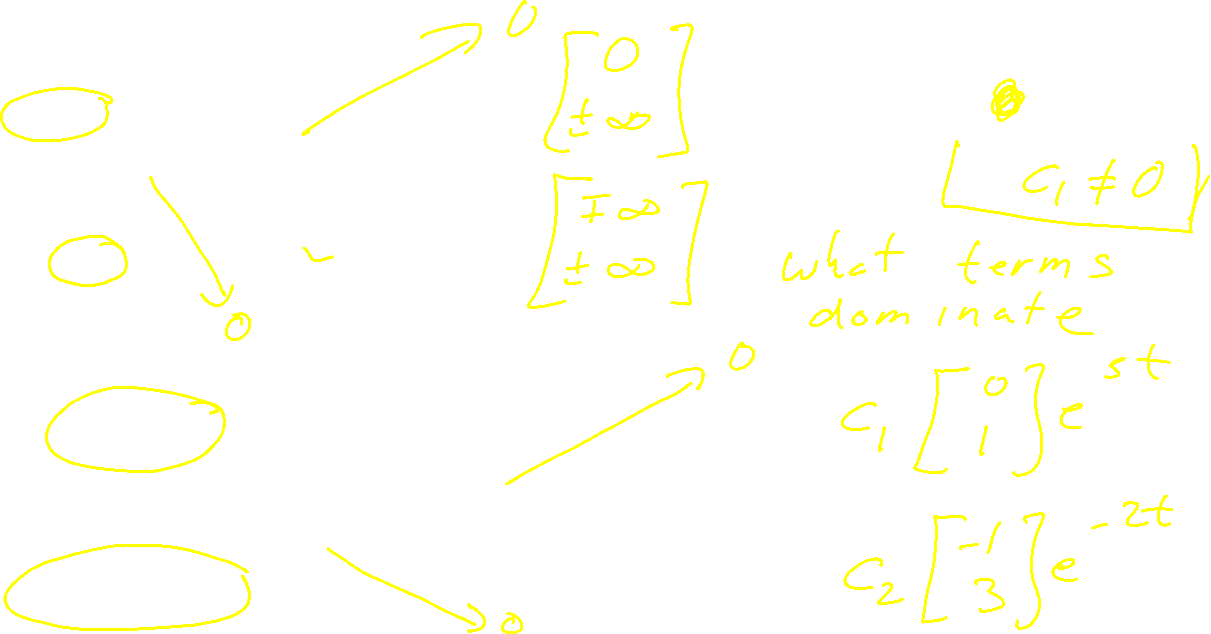 0
[0
± ∞]
[∓ ∞
± ∞]
c₁ ≠ 0
~
what terms
dominate
0
0
c₁ [0
1] e^{st}
c₂ [-1
3] e^{-2t}
0